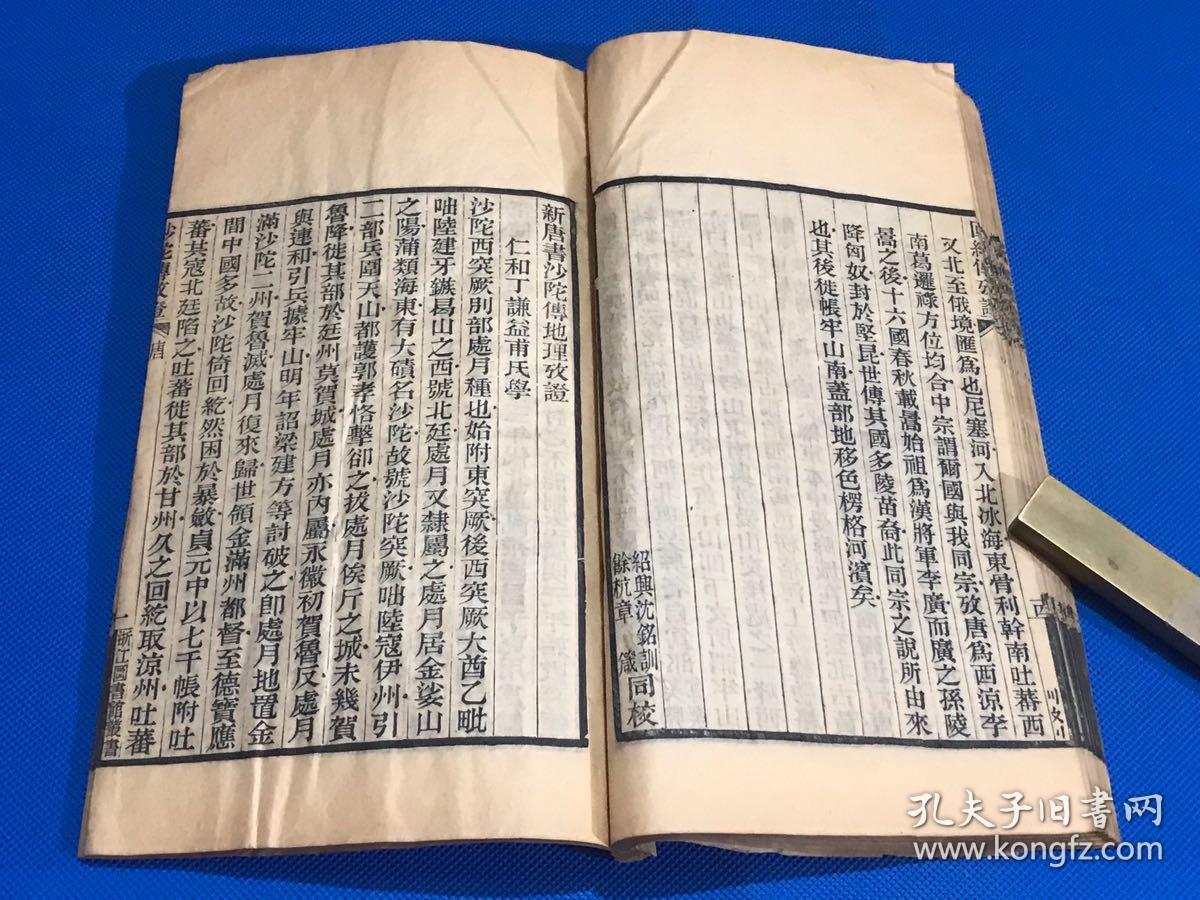 又北至俄境匯爲也尼塞河入北冰海東骨利幹南吐蕃西
南葛邏祿方位均合中宗謂爾國與我同宗攷唐爲西涼李
暠之後十六國春秋載暠始祖爲漢將軍李廣而廣之孫陵
降匈奴封於堅昆世傳其國多陵苗裔此同宗之說所由來
也其後徙帳牢山南蓋部地移色楞格河濱矣
紹興沈銘訓
餘杭章 箴
同校
新唐書沙陀傳地理攷證
仁和丁謙益甫氏學
沙陀西突厥別部處月種也始附東突厥後西突厥大酋乙毗
咄陸建牙鏃曷山之西號北廷處月又隸屬之處月居金娑山
之陽蒲類海東有大磧名沙陀故號沙陀突厥咄陸寇伊州引
二部兵圍天山都護郭孝恪擊卻之拔處月俟斤之城未幾賀
魯降徙其部於廷州莫賀城處月亦內屬永徽初賀魯反處月
與連和引兵據牢山明年詔梁建方等討破之卽處月地置金
滿沙陀二州賀魯滅處月復來歸世領金滿州都督至德寶應
間中國多故沙陀倚回紇然困於暴斂貞元中以七千帳附吐
蕃共寇北廷陷之吐蕃徙其部於甘州久之回紇取涼州吐蕃
沙陀傳攷證 唐
一
浙江圖書館叢書
孔夫子旧书网
www.kongfz.com